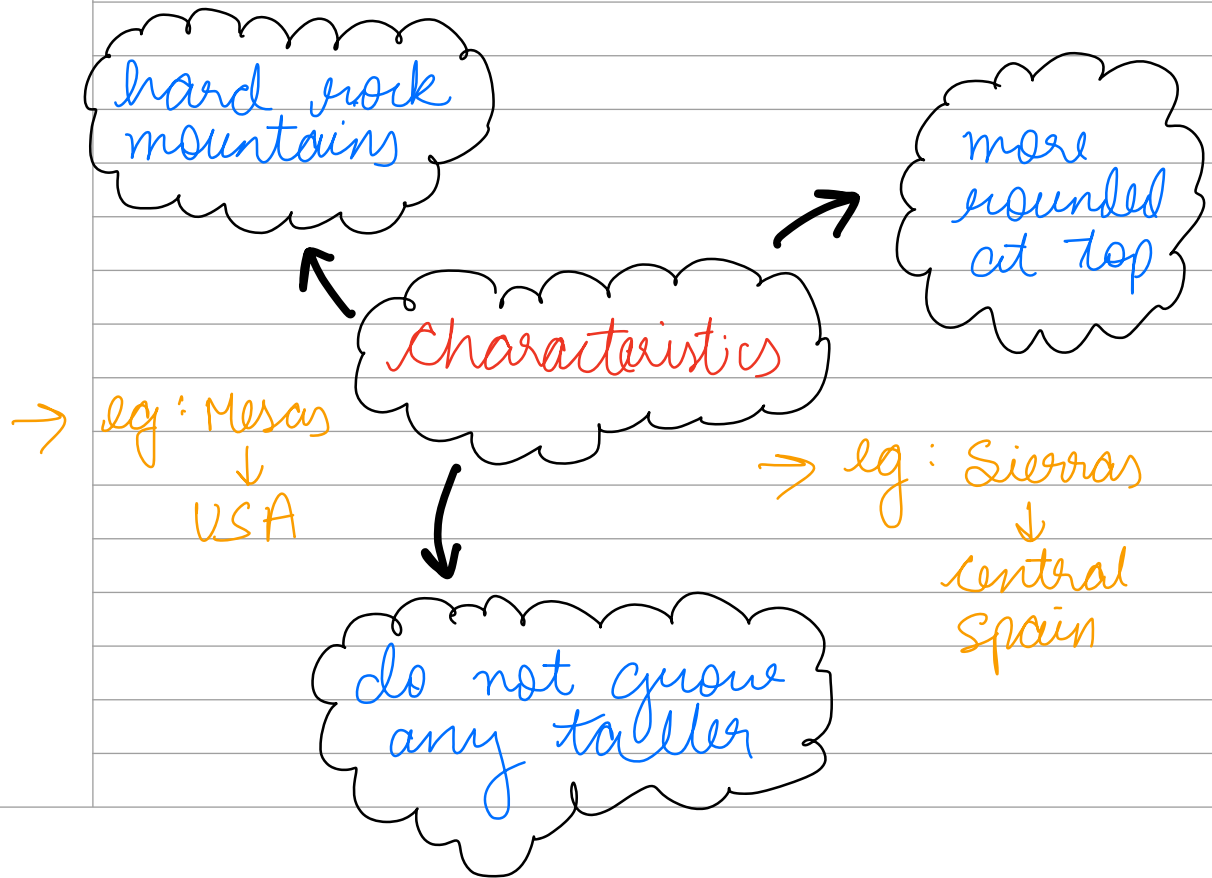 hard rock
mountains
more
rounded
at top
characteristics
→ eg : Mesas
↓
USA
→ eg : Sierras
↓
central
spain
do not grow
any taller